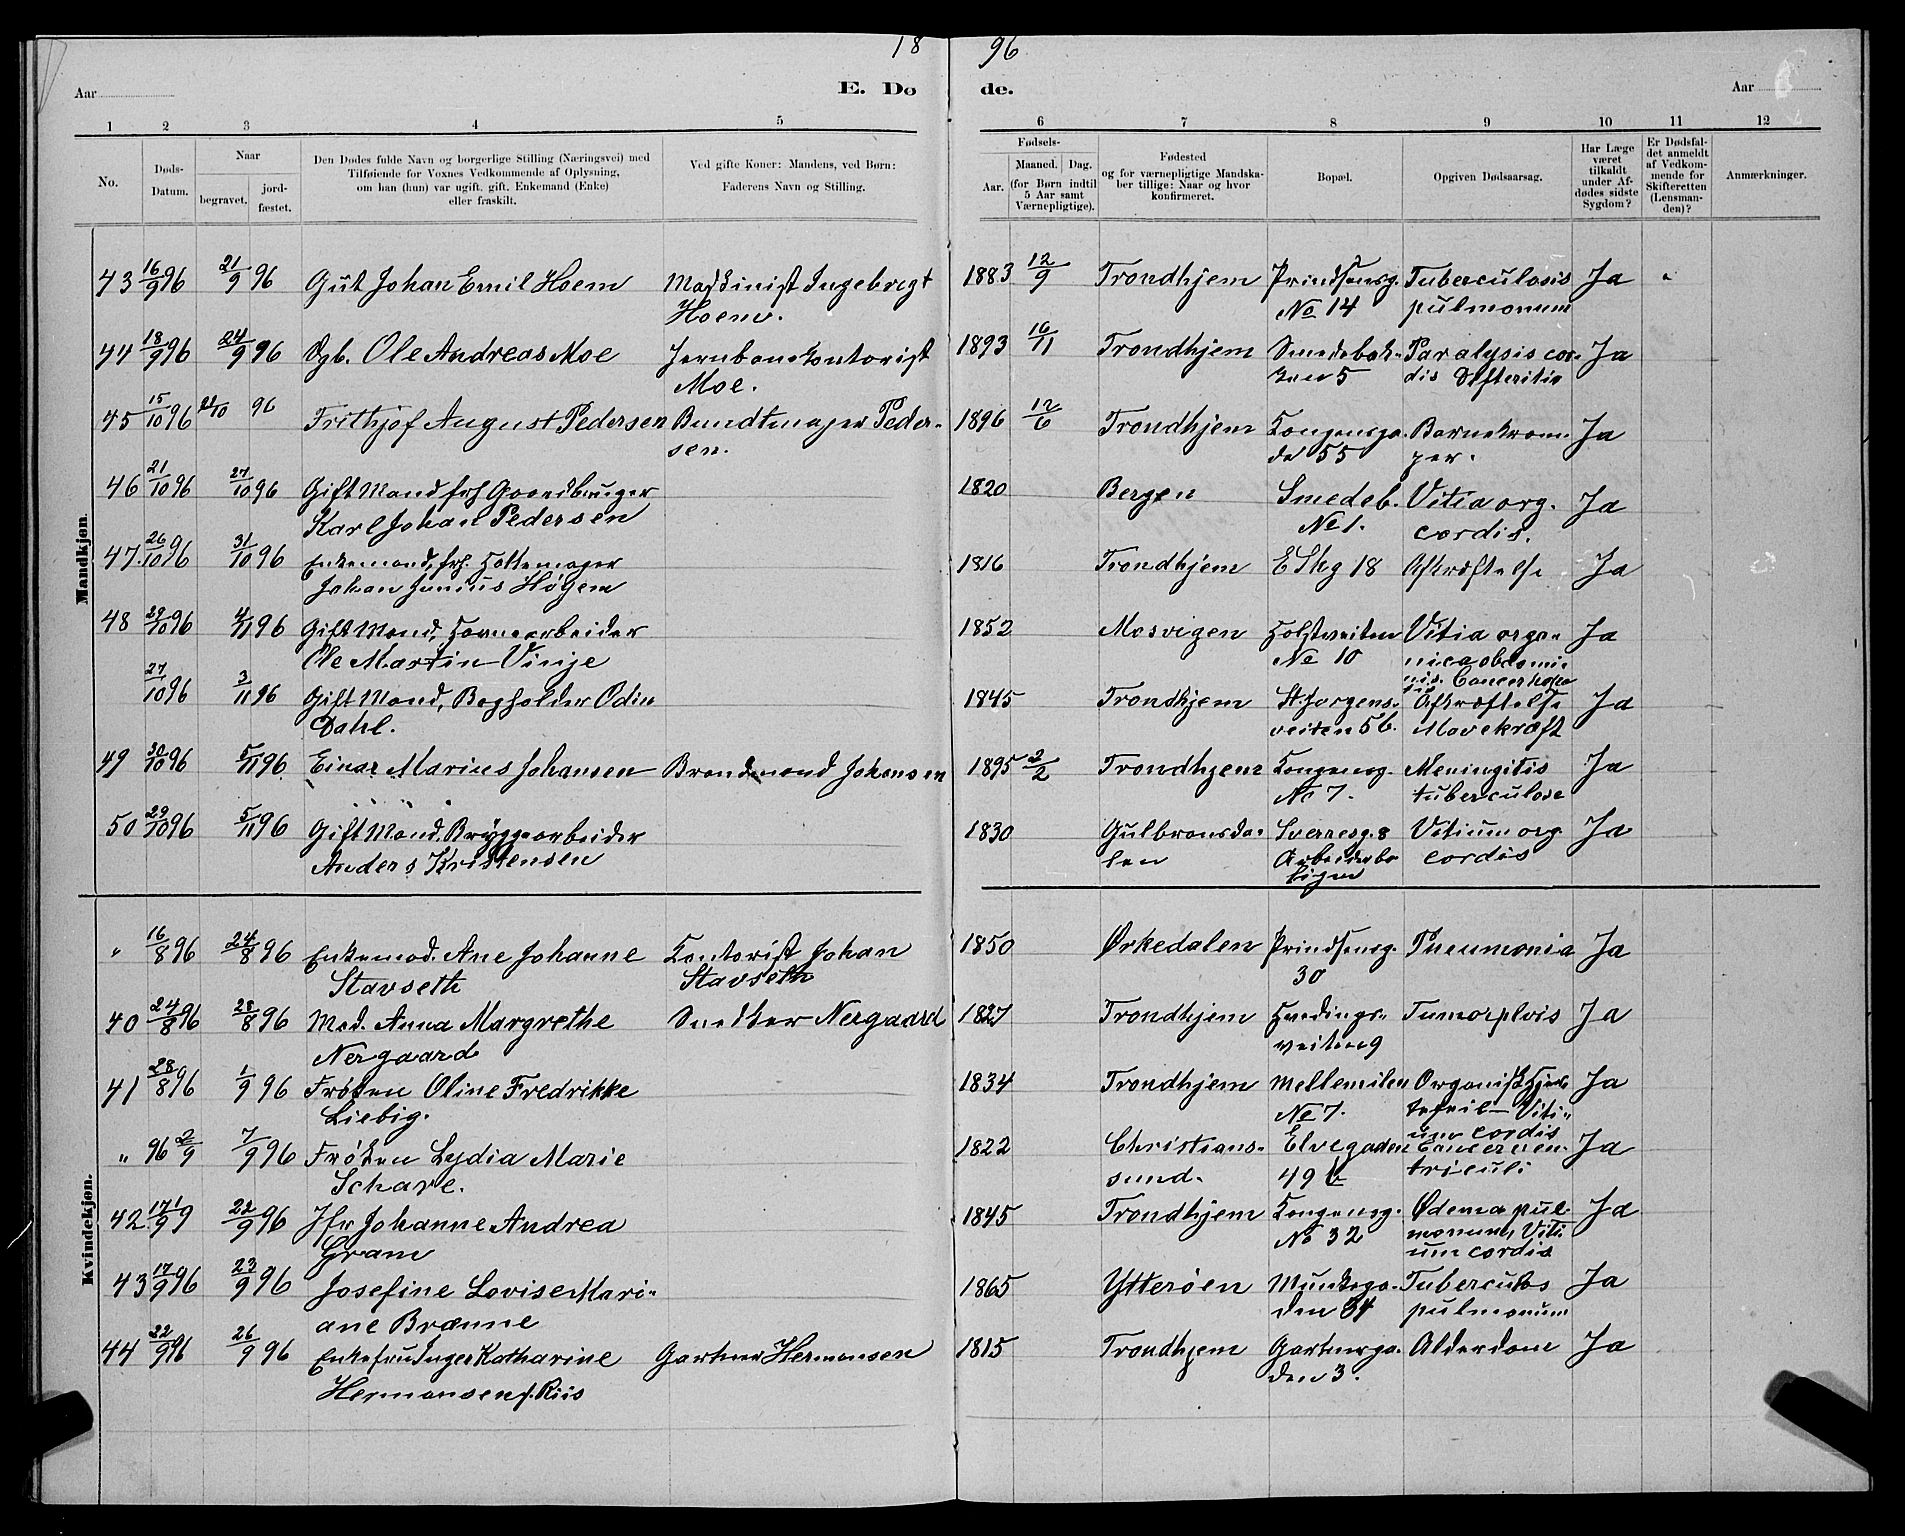 18 96
Aar E. Dø de. Aar
1 2 3 4 5 6 7 8 9 10 11 12
No. Døds-Datum. Naar begravet. jord-fæstet. Den Dødes fulde Navn og borgerlige Stilling (Næringsvei) med Tilføiende for Voxnes Vedkommende af Oplysning, om han (hun) var ugift, gift, Enkemand (Enke) eller fraskilt. Ved gifte Koner: Mandens, ved Børn: Faderens Navn og Stilling. Fødsels- Aar. Maaned. Dag. (for Børn indtil 5 Aar samt Værnepligtige). Fødested og for værnepligtige Mandskaber tillige: Naar og hvor konfirmeret. Bopæl. Opgiven Dødsaarsag. Har Læge været tilkaldt under Afdødes sidste Sygdom? Er Dødsfaldet anmeldt af Vedkommende for Skifteretten (Lensmanden)? Anmærkninger.
Mandkjøn.
43 16/9 96 21/9 96 Gut Johan Emil Hoem Maskinist Ingebrigt 1883 12/9 Trondhjem Prindsensg. Tuberculosis Ja "
Hoem. No 14 pulmonum
44 18/9 96 24/9 96 Dgb. Ole Andreas Moe Jernbanekontorist 1893 16/11 Trondhjem Smedebak- Paralysis cor- Ja
Moe. ken 5 dis Difteritis
45 15/10 96 21/10 96 Frithjof August Pedersen Bundtmager Peder- 1896 12/6 Trondhjem Kongensga- Barnekram- Ja
sen. de 55 per.
46 21/10 96 27/10 96 Gift Mand frh Gaardbruger 1820 Bergen Smedeb. Vitia org. Ja
Karl Johan Pedersen No 1. cordis.
47. 26/10 96 31/10 96 Enkemand, frh. Hattemager 1816 Trondhjem E Skg 18 Afkræftelse Ja
Johan Junius Høgem
48 29/10 96 4/11 96 Gift Mand, Havnearbeider 1852 Mosvigen Holstveiten Vitia orga- Ja
Ole Martin Vinje No 10 nica abdomi-
nis. Cancer hepa
tis
27/10 96 3/11 96 Gift Mand, Bogholder Odin 1845 Trondhjem St. Jørgens- Afkræftelse Ja
Dahl. veiten 5b. Mavekræft
49 30/10 96 5/11 96. Einar Marius Johansen Brandmand Johansen 1895 2/2 Trondhjem Kongensg. Meningitis Ja
No 7. tuberculose
50 29/10 96 5/11 96 Gift Mand. Bryggearbeider 1830 Gulbransda- Sverresg. 8 Vitium org. Ja
Anders Kristensen len Arbeiderbo cordis
ligen
Kvindekjøn.
" 16/8 96 24/8 96 Enkemad. Ane Johanne Kontorist Johan 1850 Ørkedalen Prindsensg. Pneumonia Ja
Stavseth Stavseth 30
40 24/8 96 28/8 96 Mad. Anna Margrethe Snedker Nergaard 1827 Trondhjem Hvedings- Tumor plvis Ja
Nergaard veiten 9
41 28/8 96 1/9 96 Frøken Oline Fredrikke 1834 Trondhjem Mellemilen Organisk Hjer Ja
Liebig. No 7. tefeil - Viti-
um cordis
" 96 2/9 7/9 96 Frøken Lydia Marie 1822 Christians- Elvegaden Cancer ven- Ja
Schave. sund. 49 b triculi
42. 17/9 9 22/9 96 Jfr Johanne Andrea 1845 Trondhjem Kongensg. Ødema pul Ja
Gram No 32 monum, Viti
um cordis
43 17/9 96 23/9 96 Josefine Lovise Mari- 1865 Ytterøen Munkega- Tuberculos Ja
ane Brænne den 34 pulmonum
44 22/9 96 26/9 96 Enkefru Inger Katharine Gartner Hermansen 1815 Trondhjem Gartnerga- Alderdom Ja
Hermansen f. Riis den 3.